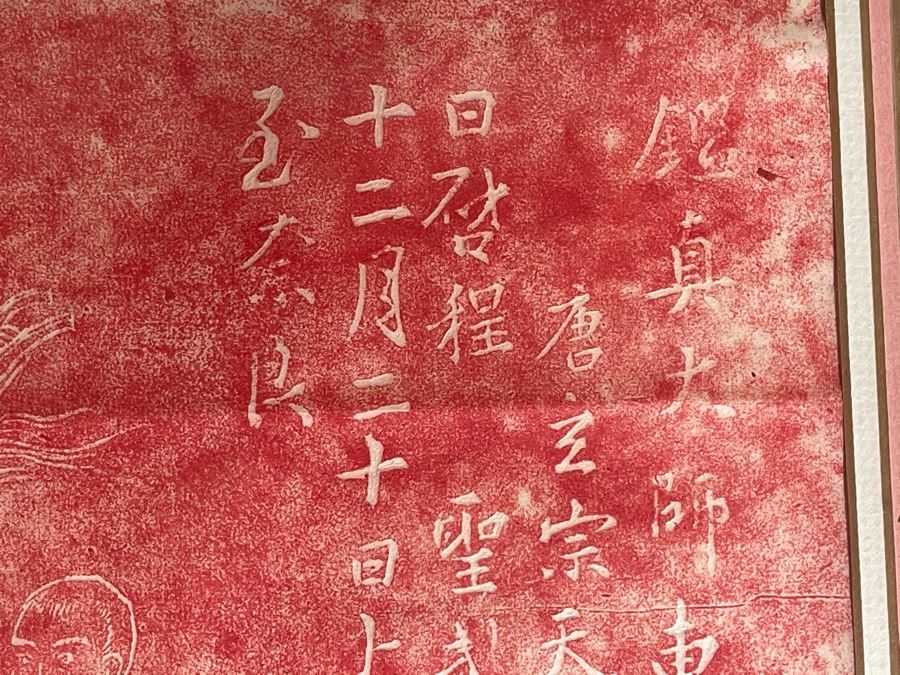 鑑真大師東
唐玄宗天
日啓程 聖武
十二月二十日上
至奈良